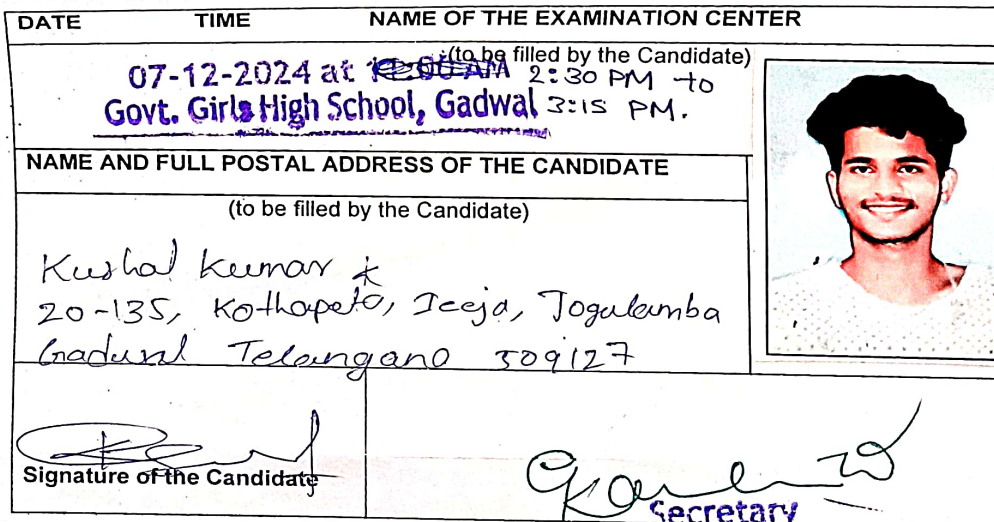 DATE TIME NAME OF THE EXAMINATION CENTER
(to be filled by the Candidate)
07-12-2024 at 2:30 PM to
Govt. Girls High School, Gadwal 3:15 PM.
NAME AND FULL POSTAL ADDRESS OF THE CANDIDATE
(to be filled by the Candidate)
Kushal Kumar K
20-135, Kothapeta, Ieeja, Jogulamba
Gadwal Telangana 509127
Signature of the Candidate
Secretary